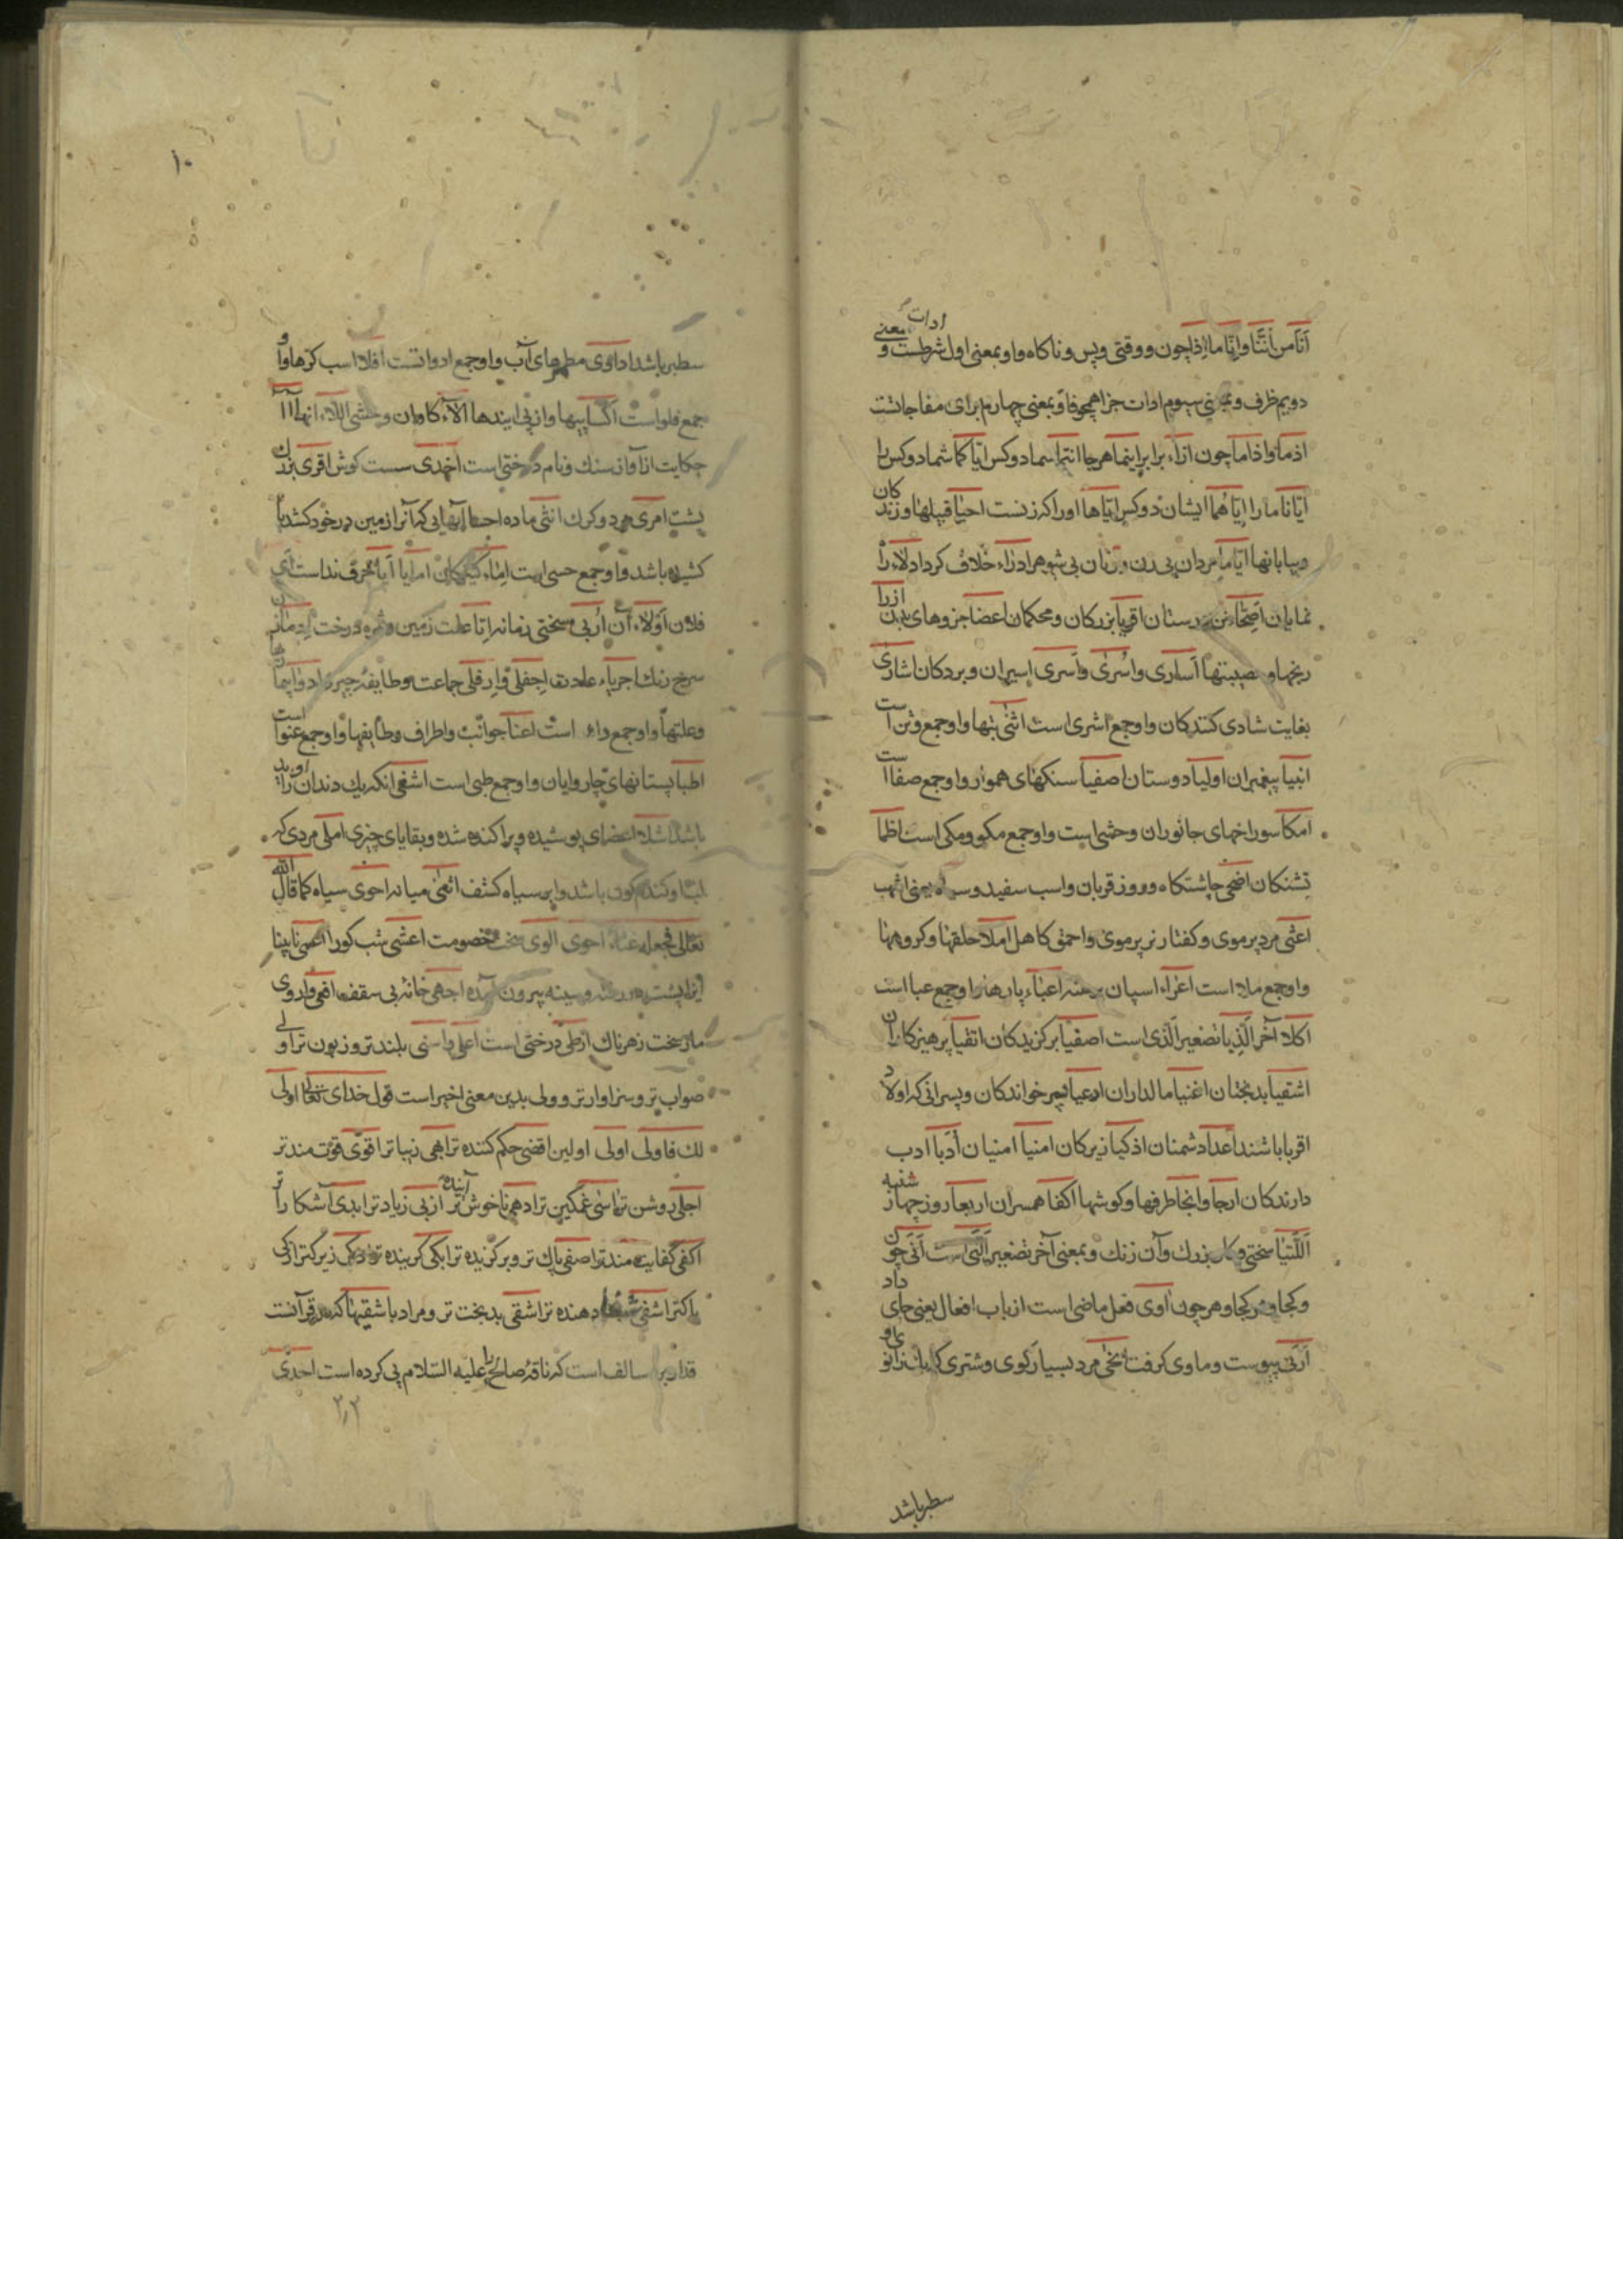 اَنَا من اَنَّنا وانّا ما اِذا چون و وقتی و پس و ناکاه و او بمعنی اول ادات شرطست و بمعنی
دویم ظرف و بمعنی سیوم ادات جزا همچو فا و بمعنی چهارم برای مفاجاتست
اذما و اذا ما چون ازاء برابر اینما هرجا انتما شما دو کس ایّاکما شما دو کس را
ایّانا ما را ایّاهما ایشان دو کس ایّاها او را که زنست احیا قبیلها و زندکان
و بیابانها ایّاما مردان بی زن و زنان بی شوهر ادراء خلاف کرد ادلاء را
نمایان اصحّا تن درستان اقویا بزرکان و محکمان اعضا جزوهای بدن ازرا
رنجها و مصیبتها اُساری و اُسری و اَسری اسیران و بردکان اشاری
بغایت شادی کنندکان و او جمع اشری است اثنی بتها و او جمع وثن است
انبیا پیغمبران اولیا دوستان اصفیا سنکهای هموار و او جمع صفا است
امکا سوراخهای جانوران وحشی است و او جمع مکو و مکی است اظما
تشنکان اضحی چاشتکاه و روز قربان و اسب سفید و سیاه یعنی اشهب
اعثی مرد پرموی و کفتار نر پرموی و احمق کاهل املا حلقها و کروهها
و او جمع ملا است اعراء اسپان برهنه اعباء بارها و او جمع عبا است
اکلا آخر الّذیا تصغیر الّذی است اصفیا برکزیدکان اتقیا پرهیزکاران
اشقیا بدبختان اغنیا مالداران ادعیا پسر خواندکان و پسرانی که اولاد
اقربا باشند اعدا دشمنان اذکیا زیرکان امنیا امنیان اُدَبا ادب
دارندکان ارجا و انحا طرفها و کوشها اکفا همسران اربعا روز چهار شنبه
اللّتیّا سختی و کار بزرک و آن زنک و بمعنی آخر تصغیر الّتی است اَنّی چون
و کجا و هر کجا و هر چون اوی فعل ماضی است از باب افعال یعنی جای داد
پیوست و ماوی کرفت انخی مرد بسیار کوی و شتری که یک زانوی او
سطبر باشد
۱۰
سطبر باشد اداوی مطهرهای آب و او جمع ادواتست افلا اسب کرها و او
جمع فلو است اکسا پیها و از پی ایندها الآء کاوان وحشی اللاء انها اا
حکایت از آواز سنک و نام درختی است اخدی سست کوش اقری بزرک
پشت امری مرد و کرک انثی ماده احسا آبهایی که آنرا زمین در خود کشد یا
کشیده باشد و او جمع حسی است اماء کنیزکان اما یا ایا حرف نداست ای
فلان اولاء آن اُربی سختی زمانه اتا علت زمین و ثمره درخت
سرخ رنک اجریاء عادت اجفلی و ازفلی جماعت و طایفه
و علتها و او جمع داء است اعنا جوانب و اطراف و طایفها و او جمع عنو است
اطبا پستانهای چاروایان و او جمع طبی است اشغی انکه یک دندان او بر
باشد اشلا اعضای پوشیده و پراکنده شده و بقایای چیزی املی مردی که
کندم کون باشد و ابر سیاه کثف اثعنی میانه احوی سیاه کما قال الله
تعالی فجعله غثاء احوی الوی سخت خصومت اعشی شب کور اعمی نابینا
سینه بیرون آمده اجهی خانه بی سقف افعی و اروی
مار سخت زهرناک ارطی درختی است اعلی و اسنی بلندتر و زبون تر اولی
صواب تر و سزاوارتر و ولی بدین معنی اخیر است قول خدای تعالی اولی
لک فاولی اولی اولین اقضی حکم کننده تر ابهی زیباتر اقوی قوت مندتر
اجلی روشن تر اسی غمکین تر ادهی ناخوش آینده تر اربی زیادتر ابدی آشکارا تر
اکفی کفایت مندتر اصفی پاک تر و برکزیده تر ابکی کرینده تر اذکی زیرکتر ازکی
پاکتر اشفی شفا دهنده تر اشقی بدبخت تر و مراد باشقیها که در قرآنست
قدار بن سالف است که ناقه صالح را علیه السلام پی کرده است احدی
۲٫۲